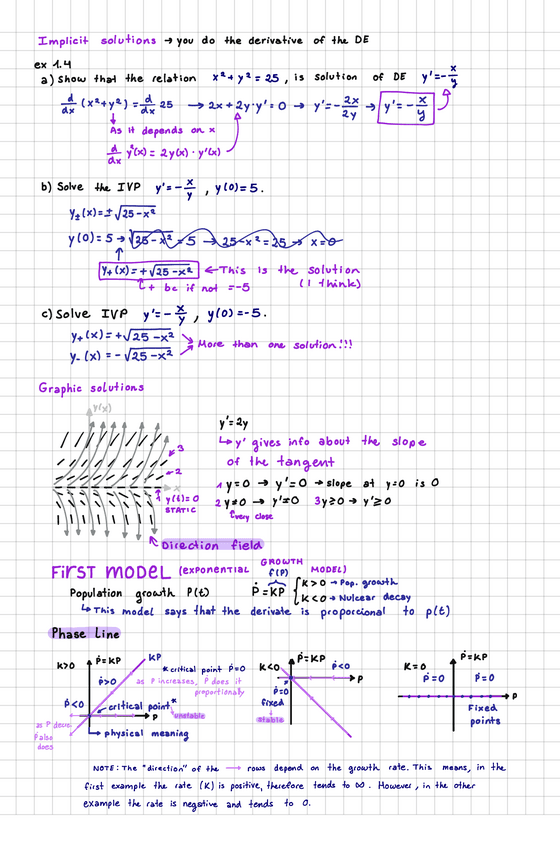 Implicit solutions → you do the derivative of the DE
ex 1.4
a) Show that the relation x² + y² = 25, is solution of DE y' = -x/y
d/dx (x²+y²) = d/dx 25 → 2x + 2y·y' = 0 → y' = -2x/2y → y' = -x/y
As it depends on x
d/dx y²(x) = 2y(x) · y'(x)
b) Solve the IVP y' = -x/y , y(0) = 5.
y±(x) = ± √25-x²
y(0) = 5 → √25-x² = 5 → 25-x² = 25 → x=0
y+(x) = + √25-x² ← This is the solution
(I think)
+ bc if not = -5
c) Solve IVP y' = -x/y , y(0) = -5.
y+(x) = +√25-x²
y-(x) = -√25-x²
More than one solution!!!
Graphic solutions
y(x)
3
2
x
1 y(t)=0
STATIC
Direction field
y' = 2y
↳ y' gives info about the slope
of the tangent
1 y=0 → y'=0 → slope at y=0 is 0
2 y≠0 → y'≠0 3 y≥0 → y'≥0
very close
FIRST MODEL (EXPONENTIAL GROWTH MODEL)
f(P)
Population growth P(t)
Ṗ = KP { K>0 → Pop. growth
K<0 → Nulcear decay
↳ This model says that the derivate is proporcional to p(t)
Phase Line
K>0
Ṗ=KP
KP
Ṗ>0
* critical point Ṗ=0
as P increases, Ṗ does it
proportionally
Ṗ<0
critical point*
P
unstable
as P decre.
Ṗ also
does
↳ physical meaning
K<0
Ṗ=KP
Ṗ<0
P
Ṗ=0
fixed
stable
K=0
Ṗ=KP
Ṗ=0
Ṗ=0
P
Fixed
points
NOTE: The "direction" of the → rows depend on the growth rate. This means, in the
first example the rate (K) is positive, therefore tends to ∞. However, in the other
example the rate is negative and tends to 0.